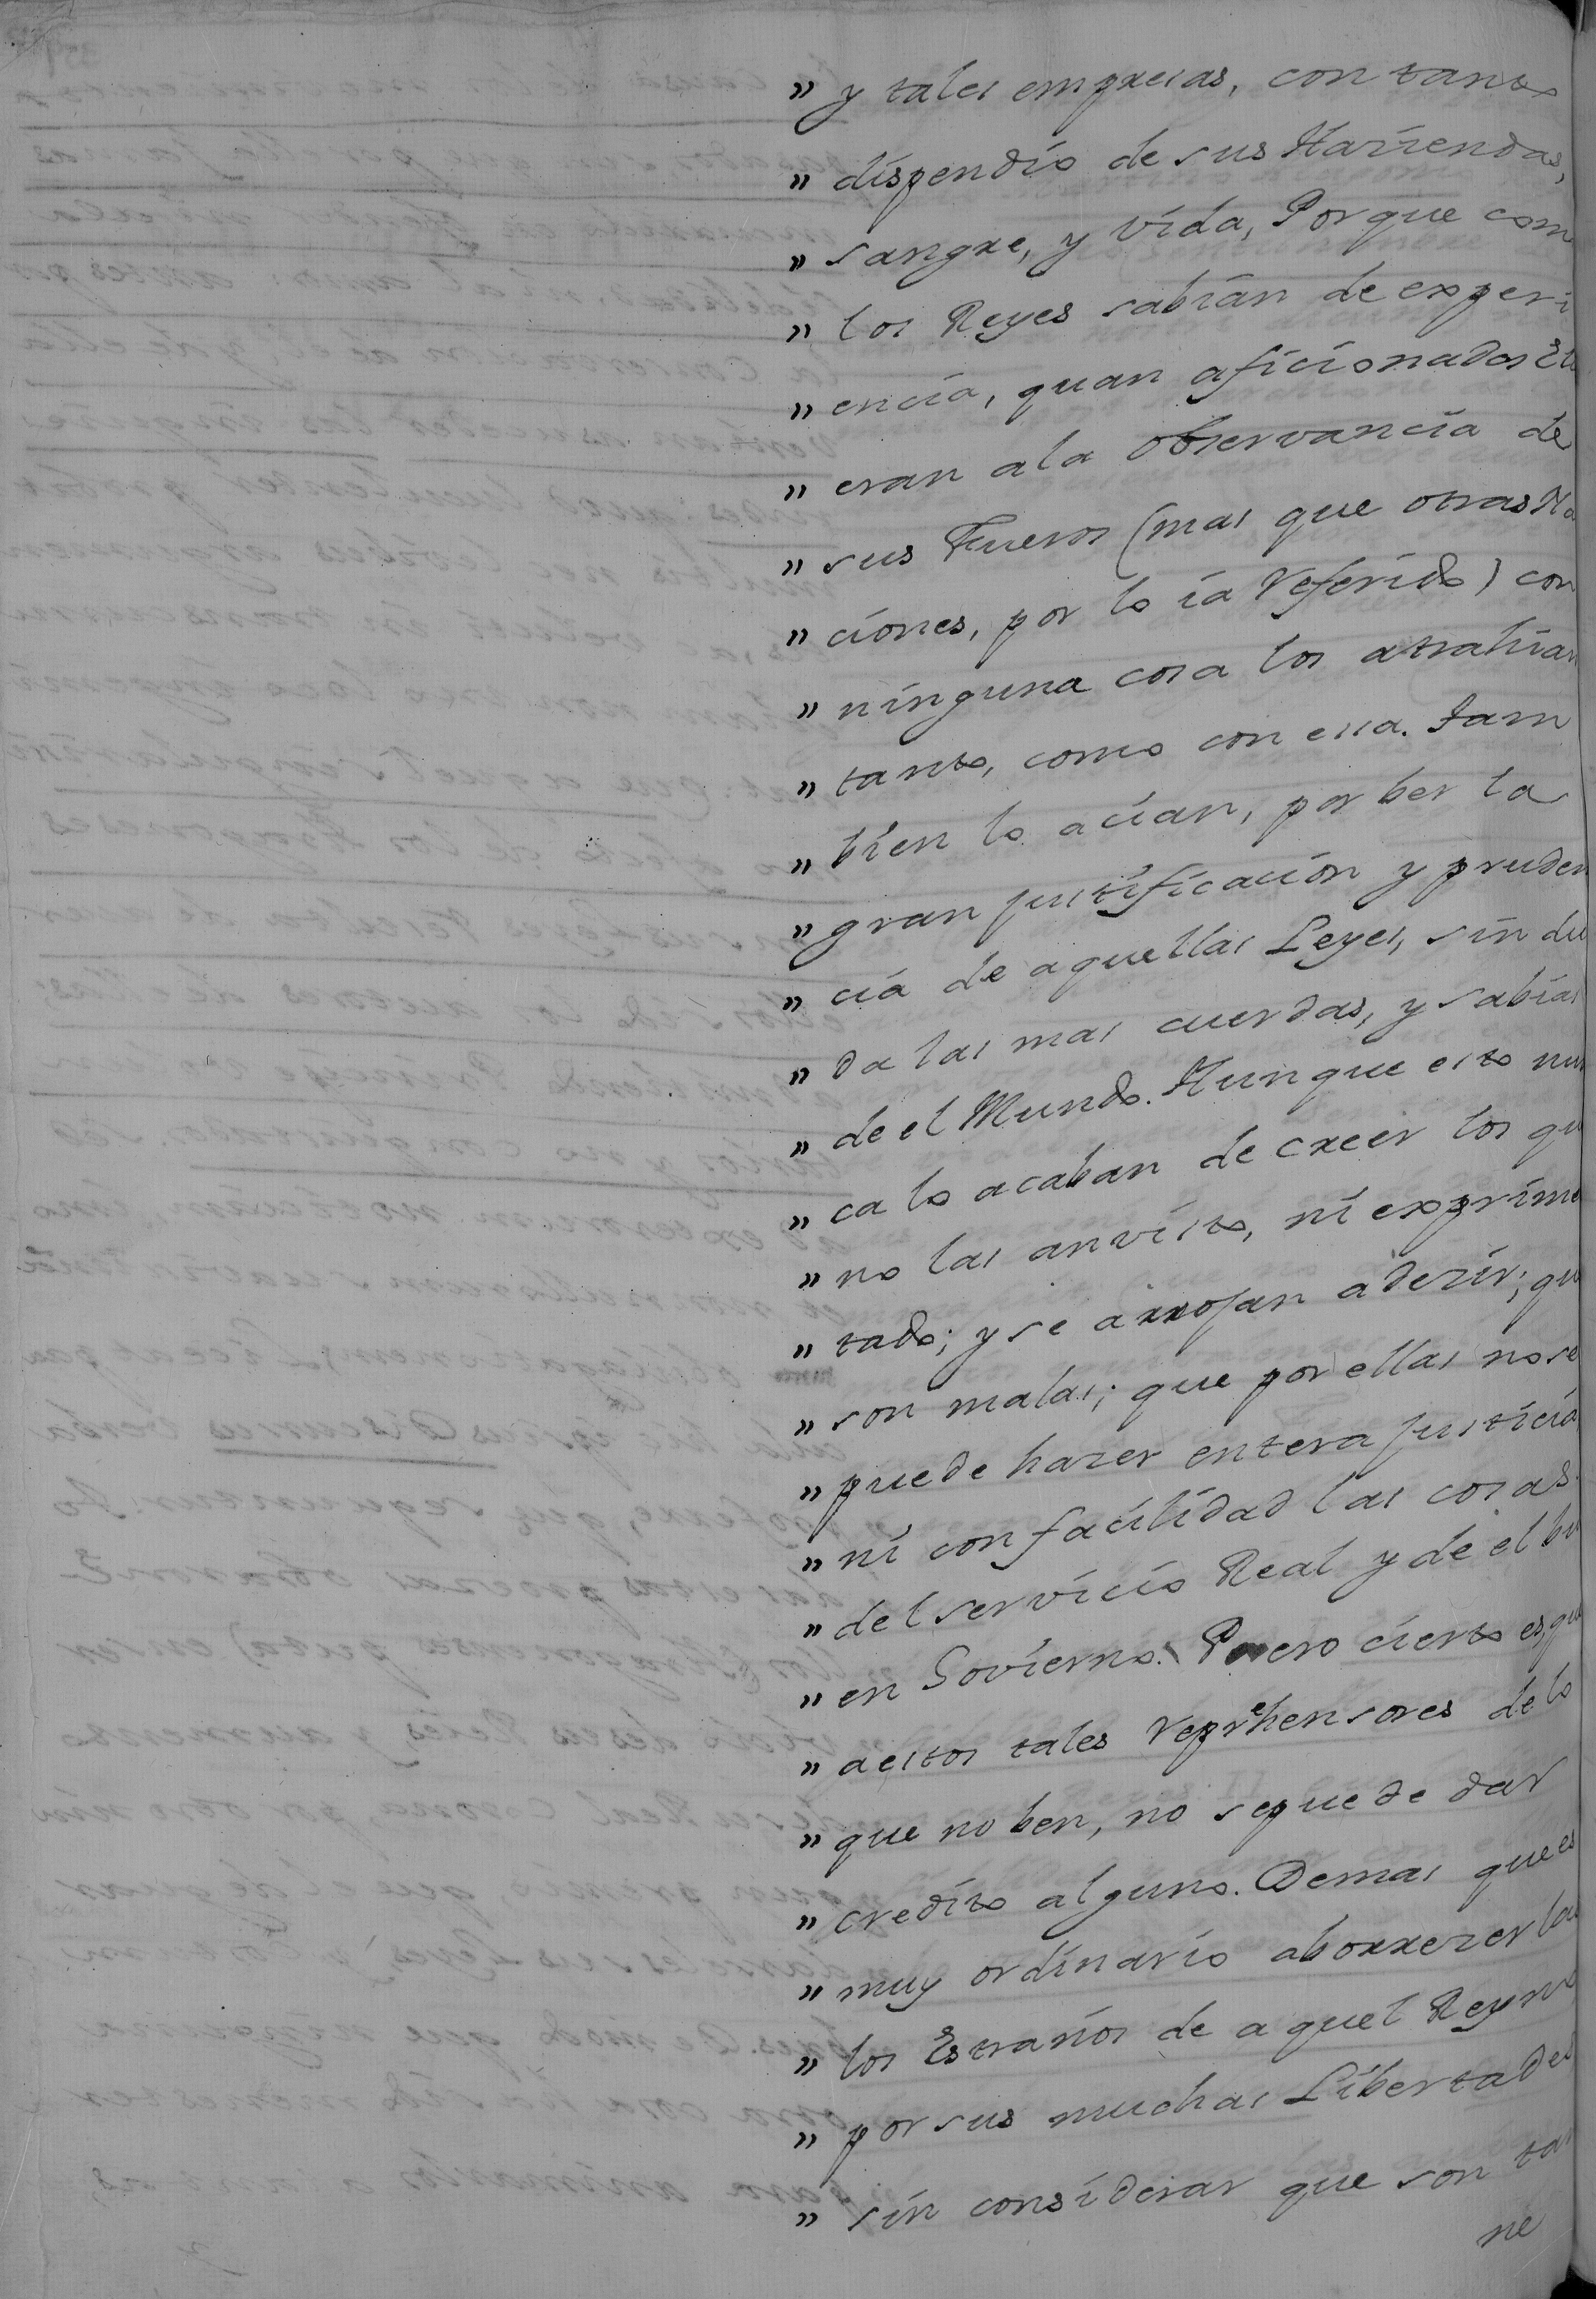 " y tales empresas, con tanto
" dispendio de sus Haziendas,
" sangre, y vida, Porque com
" los Reyes sabían de experi
" encia, quan aficionados
" eran ala observancia de
" sus Fueros (mas que otras Na
" ciones, por lo ia referido) con
" ninguna cosa los atrahian
" tanto, como con essa. Tam
" bien lo acian, por ber la
" gran justificación y pruden
" cia de aquellas Leyes, sin du
" da las mas cuerdas, y sabias
" de el Mundo. Aunque esto nun
" ca lo acaban de creer los qu
" no las an visto, ni exprime
" tado; y se arrojan a dezir; qu
" son malas; que por ellas no se
" puede hazer entera justicia
" ni con facilidad las cosas
" del servicio Real y de el bu
" en Govierno. Pero cierto es, qu
" a estos tales reprehensores de lo
" que no ben, no sepuede dar
" credito alguno. Demas que es
" muy ordinario aborrezer la
" los Estraños de aquel Reyno
" por sus muchas Libertades
" sin considerar que son ta
ne